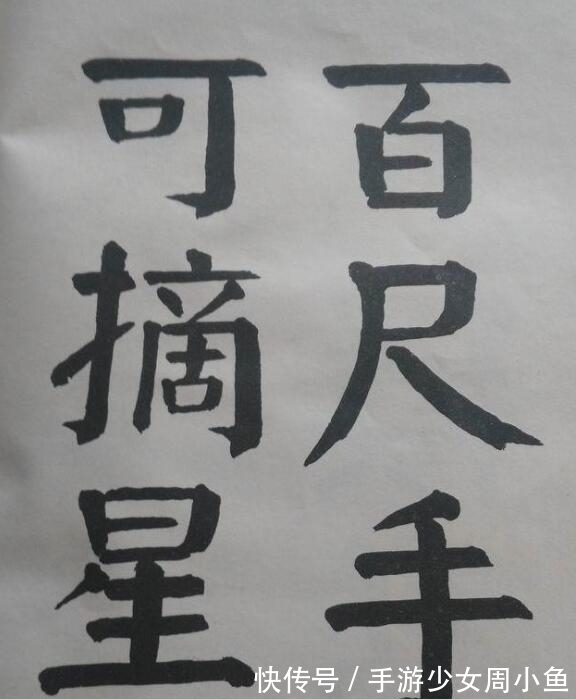 百尺手
可摘星
快传号/手游少女周小鱼